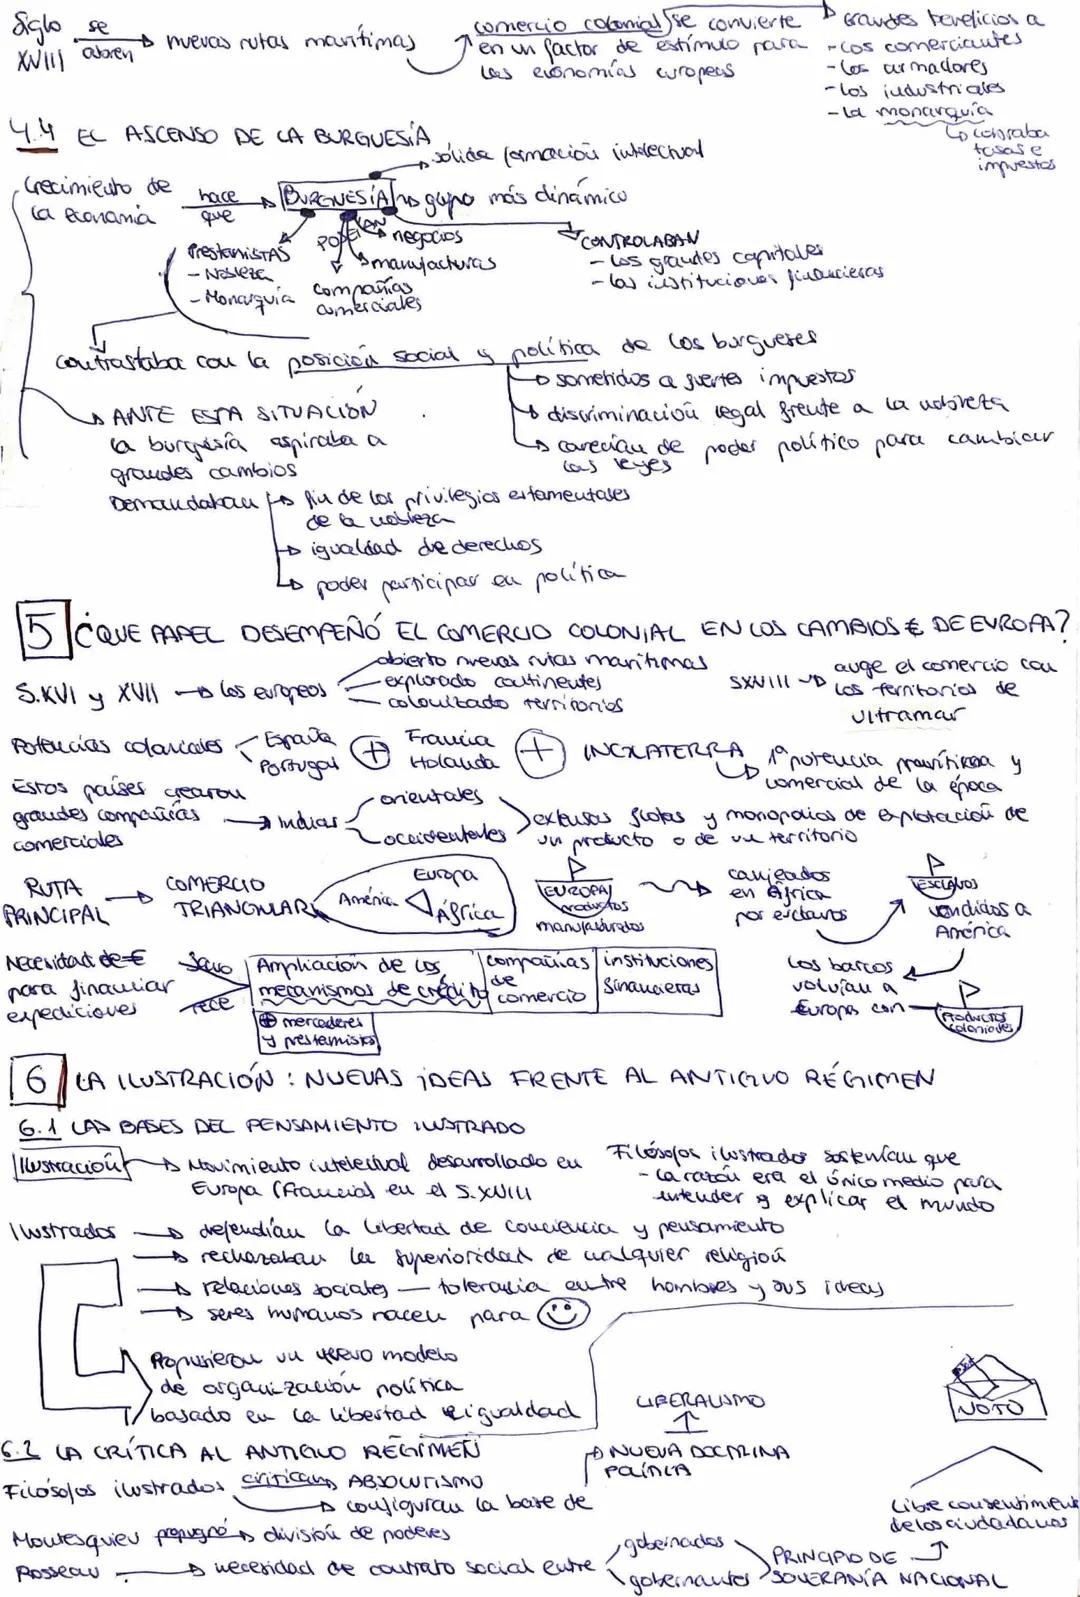 Siglo XVIII se abren nuevas rutas marítimas
comercio colonial se convierte
en un factor de estímulo para
las economías europeas
Grandes beneficios a
- Los comerciantes
- Los armadores
- Los industriales
- La monarquía
cobraba
tasas e
impuestos
4.4 EL ASCENSO DE LA BURGUESÍA
sólida formación intelectual
Crecimiento de
la economía
hace
que
BURGUESÍA
grupo más dinámico
Prestamistas
- Nobleza
- Monarquía
negocios
manufacturas
compañías
comerciales
CONTROLABAN
- Los grandes capitales
- las instituciones financieras
contrastaba con la posición social y política de los burgueses
sometidos a fuertes impuestos
discriminación legal frente a la nobleza
carecían de poder político para cambiar
las leyes
ANTE ESTA SITUACIÓN
la burguesía aspiraba a
grandes cambios
Demandaban
fin de los privilegios estamentales
de la nobleza
igualdad de derechos
poder participar en política
5 ¿QUE PAPEL DESEMPEÑÓ EL COMERCIO COLONIAL EN LOS CAMBIOS € DE EUROPA?
S.XVI y XVII los europeos
abierto nuevas rutas marítimas
explorado continentes
colonizado territorios
SXVIII
auge el comercio con
los territorios de
ultramar
Potencias coloniales
España
Portugal
+
Francia
Holanda
+
INGLATERRA
1ª potencia marítima y
comercial de la época
Estos países crearon
grandes compañías
comerciales
Indias
orientales
occidentales
extensas flotas y monopolios de explotación de
un producto o de un territorio
RUTA
PRINCIPAL
COMERCIO
TRIANGULAR
Europa
América
África
EUROPA
productos
manufacturados
canjeados
en África
por esclavos
ESCLAVOS
vendidos a
América
Los barcos
volvían a
Europa con
Productos
coloniales
Necesidad de €
para financiar
expediciones
favo
rece
Ampliación de los
mecanismos de crédito
compañías
de
comercio
instituciones
financieras
+ mercaderes
y prestamistas
6 LA ILUSTRACIÓN: NUEVAS IDEAS FRENTE AL ANTIGUO RÉGIMEN
6.1 LAS BASES DEL PENSAMIENTO ILUSTRADO
Ilustración
Movimiento intelectual desarrollado en
Europa (Francia) en el S.XVIII
Filósofos ilustrados sostenían que
- La razón era el único medio para
entender y explicar el mundo
Ilustrados
defendían la libertad de conciencia y pensamiento
rechazaban la superioridad de cualquier religión
relaciones sociales — tolerancia entre hombres y sus ideas
seres humanos nacen para
Propusieron un nuevo modelo
de organización política
basado en la libertad e igualdad
6.2 LA CRÍTICA AL ANTIGUO RÉGIMEN
Filósofos ilustrados critican ABSOLUTISMO
configuran la base de
NUEVA DOCTRINA
POLÍTICA
LIBERALISMO
VOTO
Montesquieu propugnó división de poderes
Rosseau necesidad de contrato social entre
gobernados
gobernantes
PRINCIPIO DE
SOVERANÍA NACIONAL
Libre consentimiento
de los ciudadanos